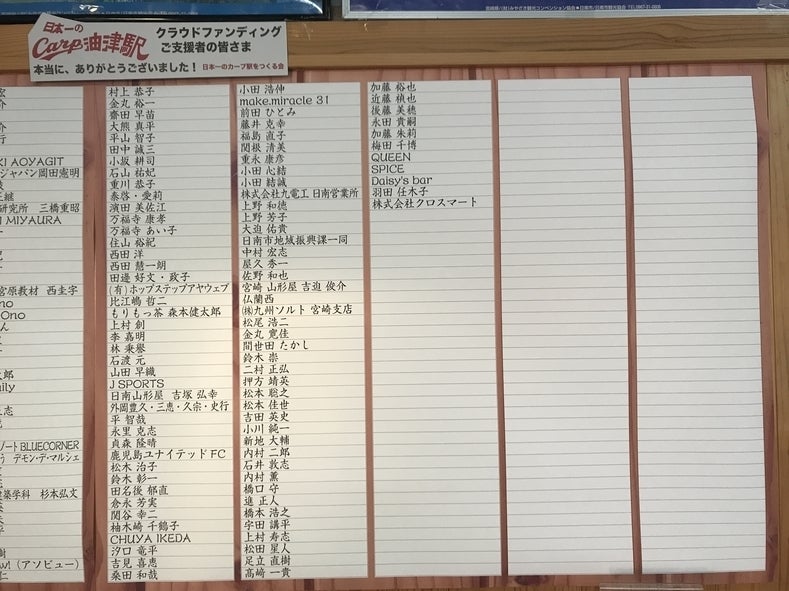 日本一の
Carp油津駅
クラウドファンディング
ご支援者の皆さま
本当に、ありがとうございました！
日本一のカープ駅をつくる会
KI AOYAGIT
ジャパン岡田憲明
研究所 三橋重昭
MIYAURA
宮原教材 西圭字
no
Ono
ん
郎
ily
志
ート BLUECORNER
う デモン・デ・マルシェ
築学科 杉本弘文
樹
w!（アソビュー）
仁
村上 恭子
金丸 裕一
齋田 早苗
大熊 真平
平山 智子
田中 誠三
小坂 耕司
石山 祐妃
重川 恭子
泰啓・愛莉
濱田 美佐江
万福寺 康孝
万福寺 あい子
住山 裕紀
西田 洋
西田 慧一朗
田邉 好文・政子
(有)ホップステップアヤウェブ
比江嶋 哲二
もりもっ茶 森本健太郎
上村 創
李 嘉明
林 秉譽
石渡 元
山田 早織
J SPORTS
日南山形屋 吉塚 弘幸
外岡豊久・三恵・久宗・史行
平 智哉
永里 克志
貞森 隆晴
鹿児島ユナイテッドFC
松木 治子
鈴木 彰一
田名後 郁直
倉永 芳実
関谷 幸二
柚木崎 千鶴子
CHUYA IKEDA
汐口 竜平
吉見 喜恵
桑田 和哉
小田 浩伸
make.miracle 31
前田 ひとみ
藤井 克幸
福島 直子
関根 清美
重永 康彦
小田 心結
小田 結誠
株式会社九電工 日南営業所
上野 和徳
上野 芳子
大迫 佑貴
日南市地域振興課一同
中村 宏志
屋久 秀一
佐野 和也
宮崎 山形屋 吉迫 俊介
仏蘭西
㈱九州ソルト 宮崎支店
松尾 浩二
金丸 寛佳
間世田 たかし
鈴木 崇
二村 正弘
押方 靖英
松本 聡之
松本 佳世
吉田 英史
小川 純一
新地 大輔
内村 二郎
石井 敦志
内村 薫
橋口 守
進 正人
橋本 浩之
宇田 講平
上村 寿志
松田 星人
足立 直樹
髙﨑 一貴
加藤 裕也
近藤 禎也
後藤 美穂
永田 貴嗣
加藤 朱莉
梅田 千博
QUEEN
SPICE
Daisy's bar
羽田 任木子
株式会社クロスマート